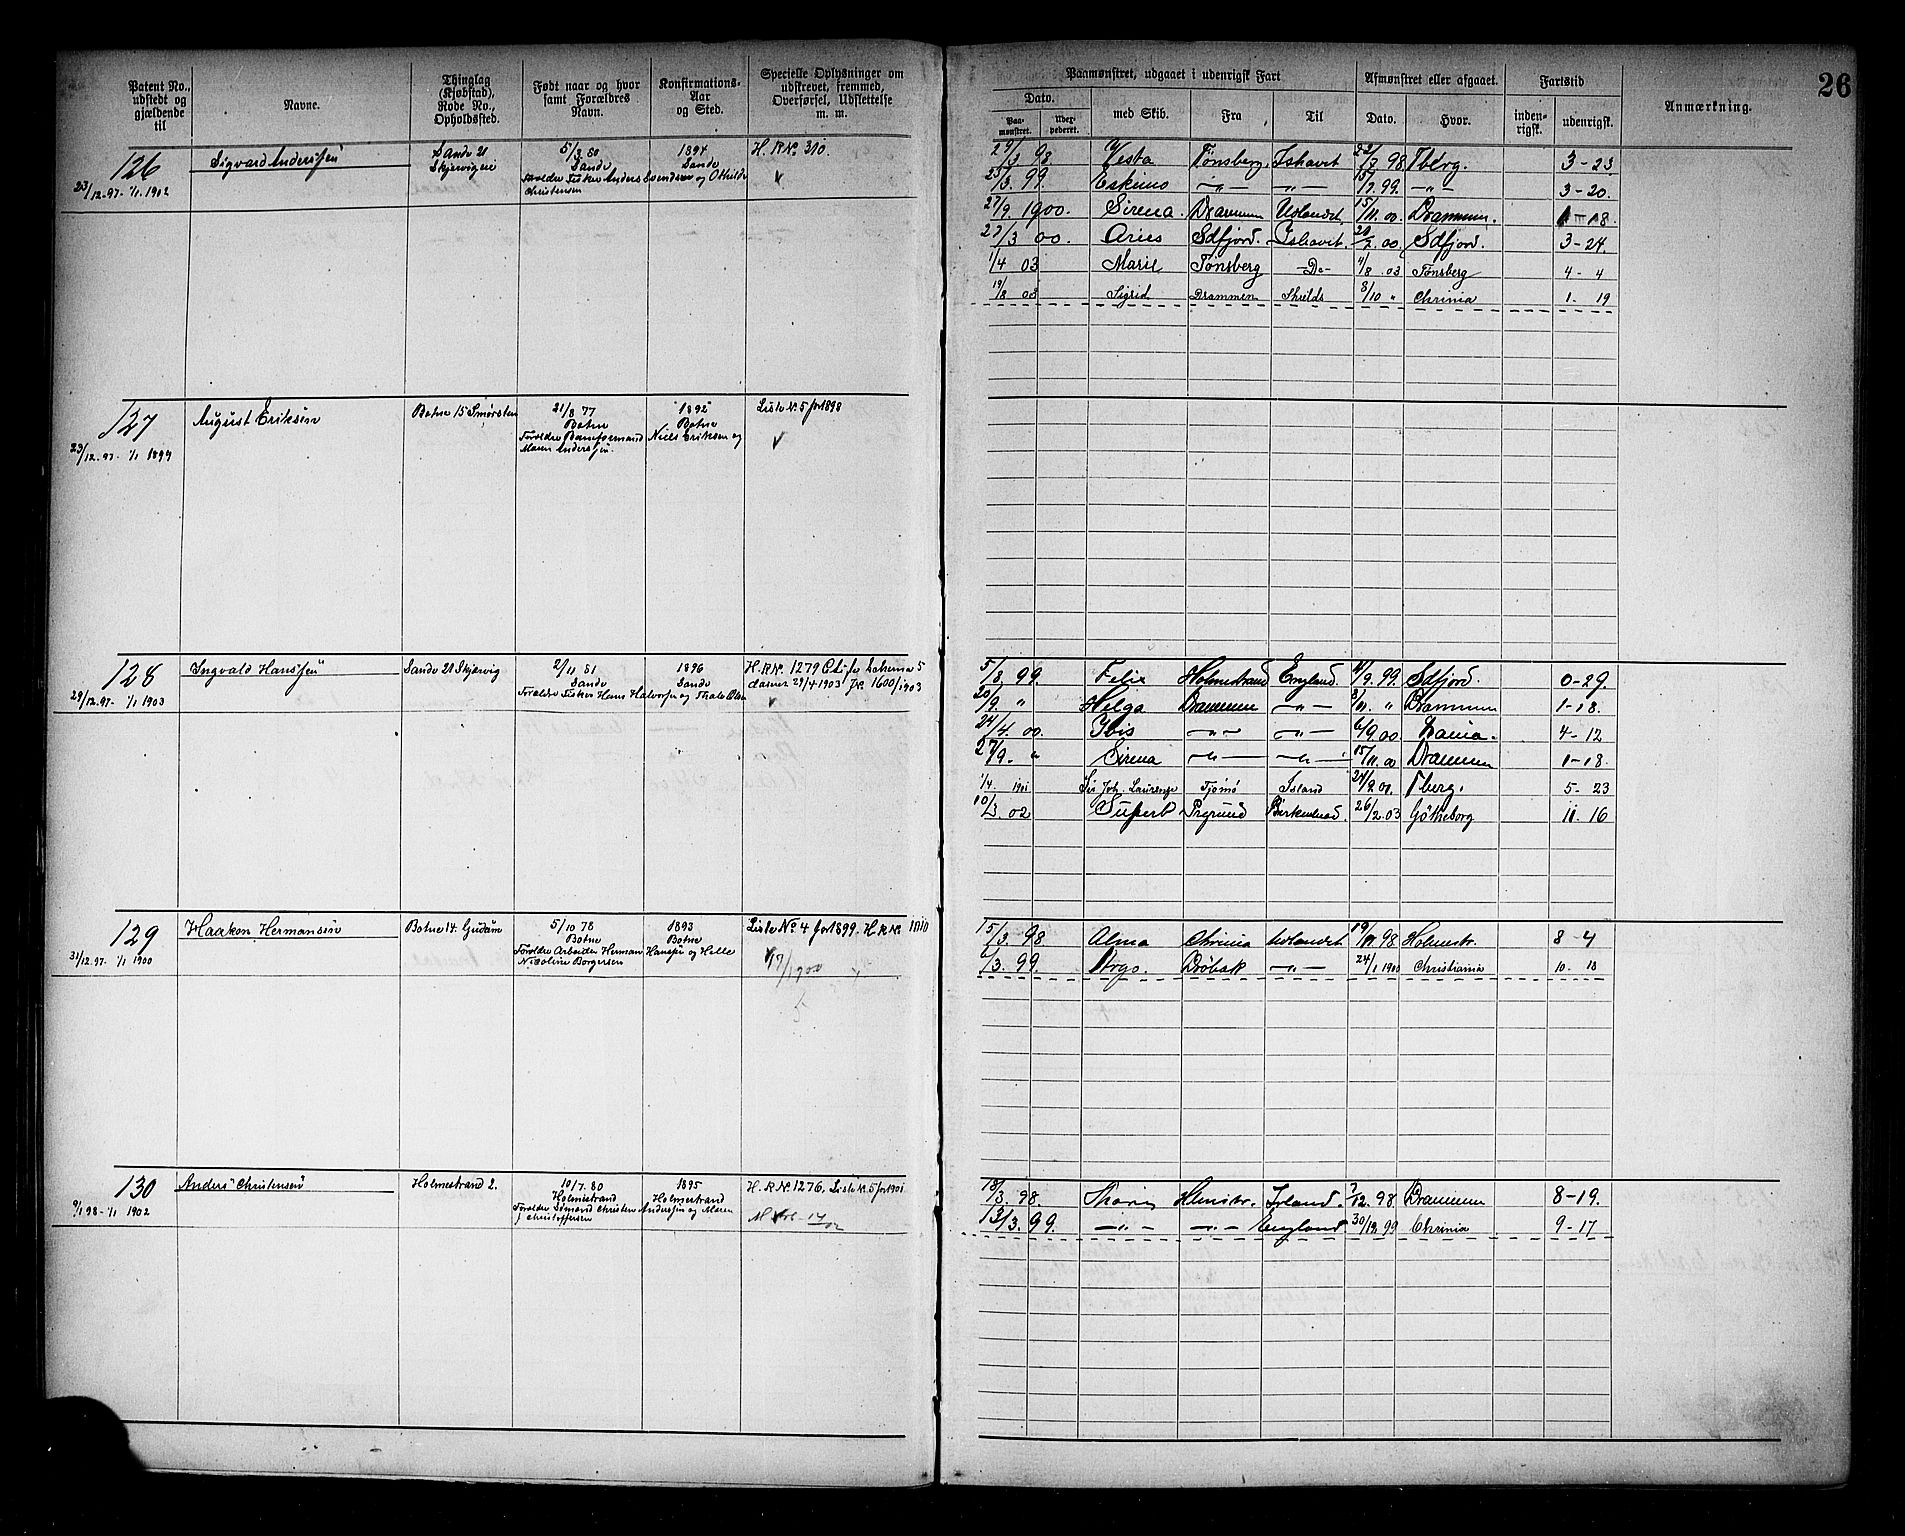 26
Patent No., udstedt og gjældende til
Navne.
Thinglag (Kjøbstad), Rode No., Opholdssted.
Født naar og hvor samt Forældres Navn.
Konfirmations-Aar og Sted.
Specielle Oplysninger om udskrevet, fremmed, Overførsel, Udslettelse m. m.
Paamønstret, udgaaet i udenrigsk Fart
Dato.
Paa-mønstret.
med Skib.
Fra
Til
Afmønstret eller afgaaet.
Dato.
Hvor.
Fartstid
inden-rigsk.
udenrigsk.
Anmærkning.
126 Sigvard Anderssen Sande 21 5/3 80 1894 H. R No. 310.
Skjervigen Sande Sande
23/12.97 - 1/1 1902 Forældre Fisker Anders Svendsen og Othilde
Christensen
29/3 98 Vesta Tønsberg. Ishavet 22/7 98 Tberg. 3-23
25/3. 99 Eskimo - " - - " - 15/7. 99. - " - 3-20.
27/9. 1900. Sirena. Drammen Udlandet 15/11. 00. Drammen. 1-18.
27/3 00. Aries Sdfjord. Ishavet. 20/7. 00. Sdfjord. 3-24.
1/4 03 Marie Tønsberg - Do - 4/8 03 Tønsberg 4-4
19/8 03 Sigrid Drammen Shields 8/10 " Chrinia 1-19
127 August Eriksen Botne 15 Smørsten 21/8 77 1892 Liste No. 5 for 1898
Botne Botne
23/12.97 - 1/1 1899 Forældre Niels Eriksen og
Maren Anderssen.
128 Ingvald Hanssen Sande 21 Skjærvig 2/11 81 1896 H. R No. 1279
Sande Sande 29/4 1903 Jr. 1600/1903
29/12.97 - 1/1 1903 Forældre Fisker Hans Halvorsen og Thale Olsen
5/8 99 Felix Holmestrand England. 4/9. 99. Sdfjord. 0-29.
20/9. " Helga Drammen - " - 8/11. " Drammen 1-18.
24/4. 00 Ibis - " - - " - 6/9 00 4-12
27/9. " Sirena - " - - " - 15/11. 00 Drammen 1-18.
1/4. 1901 Tjømø Island Tberg. 5-23
10/3. 02 Superb Prgrund Birkenhead. 26/2.03 Götheborg 11-16
129 Haakon Hermansen Botne 14. Gudum 5/10 78 1893 Liste No. 4 for 1899. H. R No. 1010
Botne Botne
31/12.97 - 1/1 1900 Forældre Arbeider Herman Hanssen og Helle
Nicoline Borgersen 17/1900
15/3. 98 Alma Chrinia Udlandet 19/11 98 Holmestr. 8-4
6/3. 99. Argo. Drøbak - " - 24/1 1900 Christiania 10-18
130 Anders Christensen Holmestrand 2. 10/7. 80 1895 H. R No. 1276. Liste No. 5 for 1901.
Holmestrand Holmestrand
9/1 98 - 1/1 1902 Forældre Sømand Christen Anderssen og Maren
Christoffersen
18/3. 98. Island. 7/12. 98 Drammen 8-19.
13/3. 99. - " - - " - England. 30/12 99 Chrinia 9-17